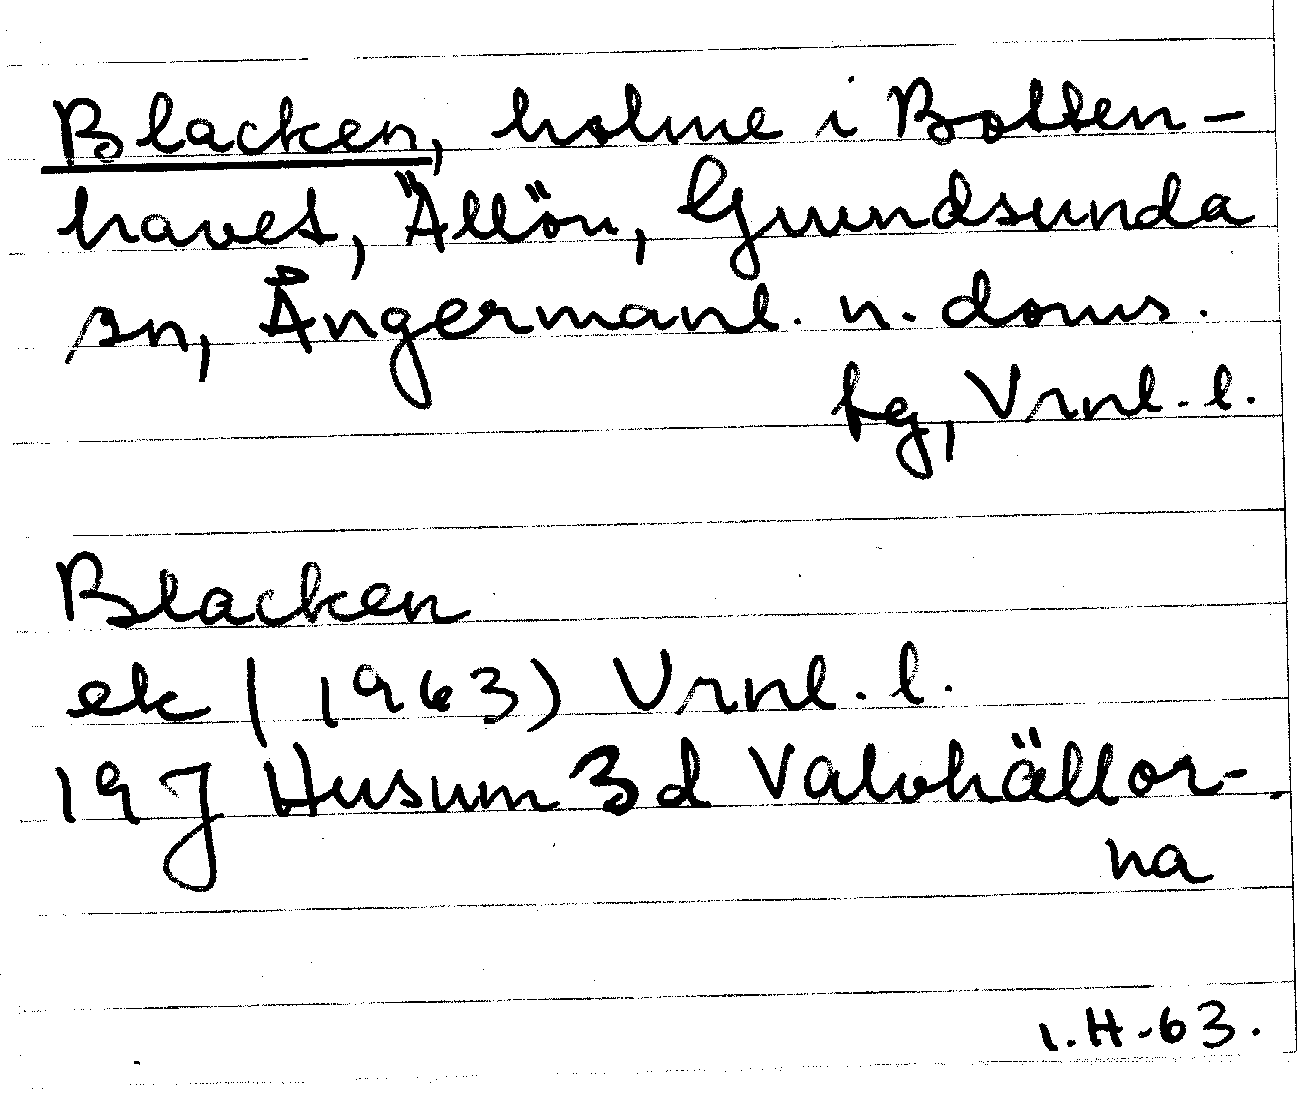 Blacken, holme i Botten-
havet, Ällön, Grundsunda
sn, Ångermanl. n. doms.
fg, Vrnl. l.
Blacken
ek (1963) Vrnl. l.
19 J Husum 3d Valvhällor-
na
I.H-63.